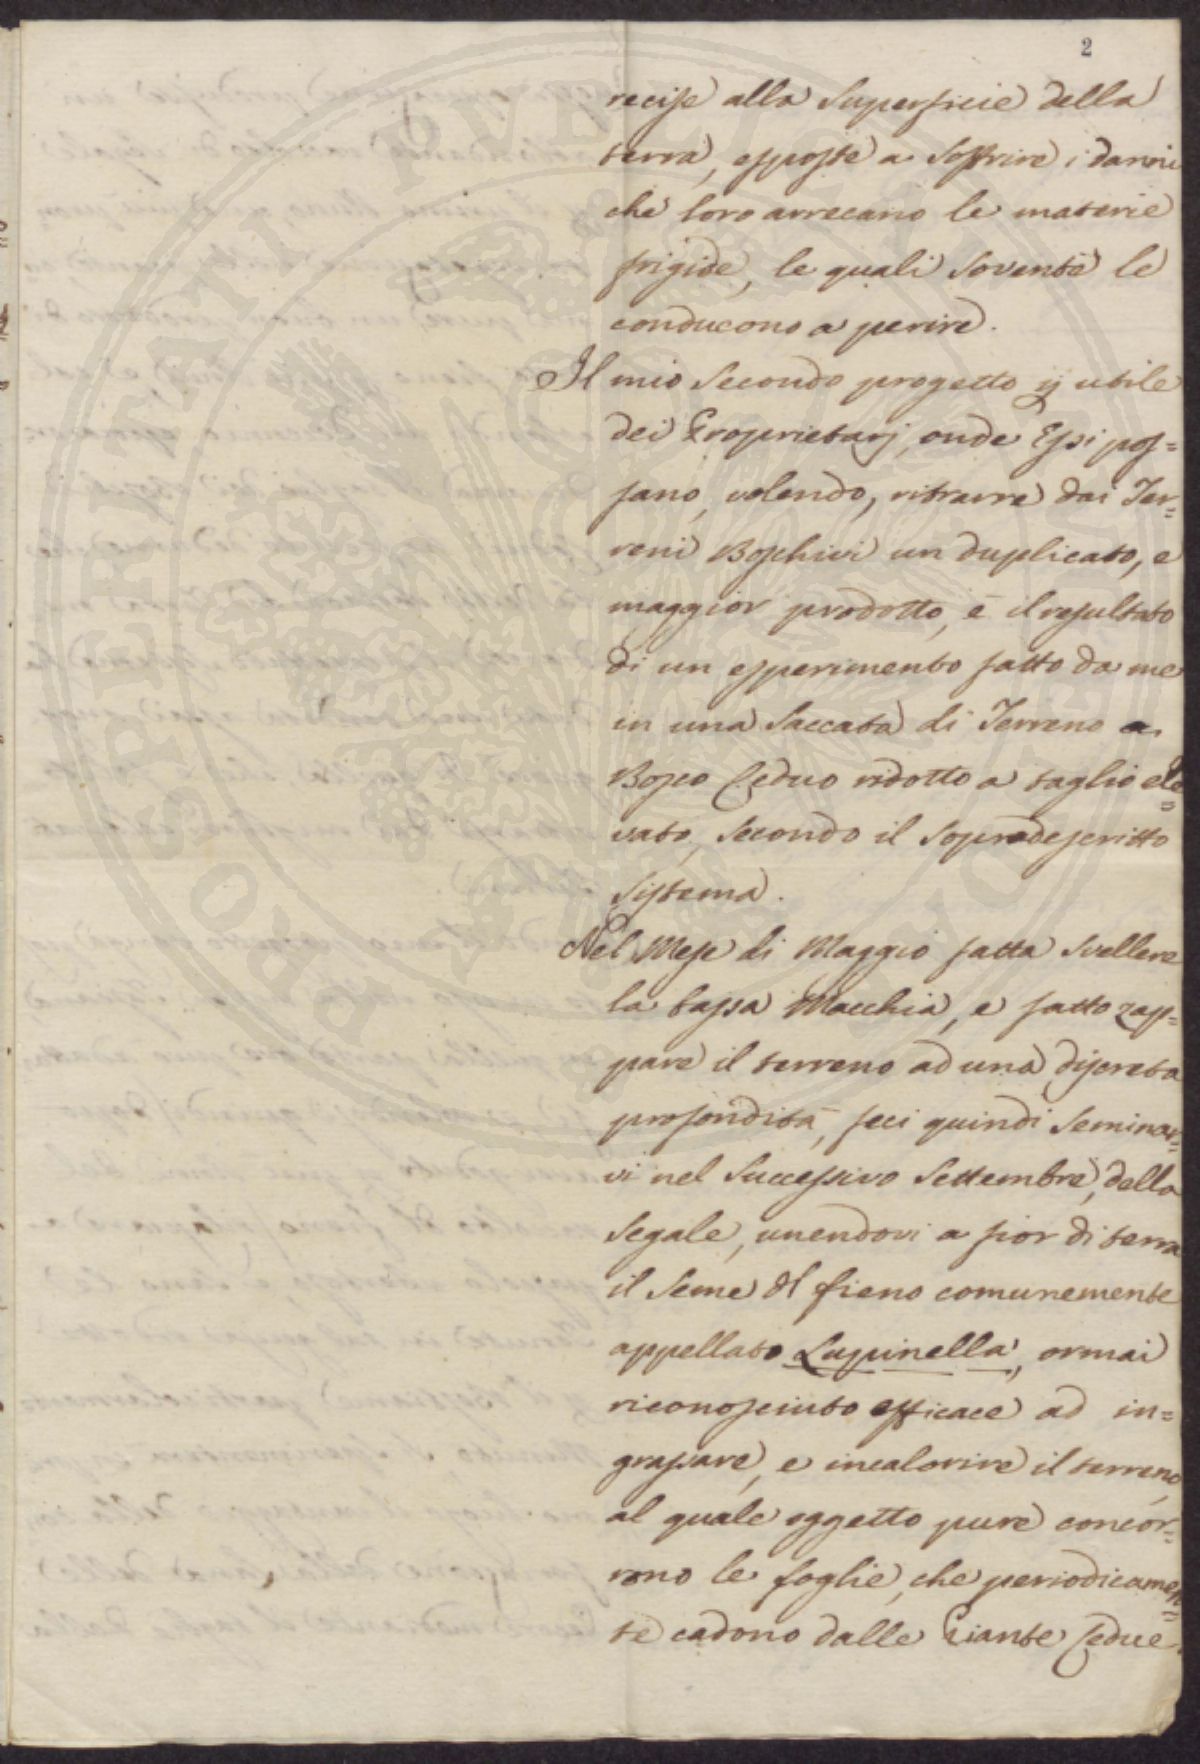 2
recise alla Superficie della
terra, esposte a Soffrire i danni
che loro arrecano le materie
frigide, le quali Sovente le
conducono a perire.
Il mio Secondo progetto p utile
dei Proprietarj, onde Essi pos=
sano, volendo, ritrarre dai Ter=
reni Boschivi un duplicato, e
maggior prodotto, è il resultato
di un esperimento fatto da me
in una Saccata di Terreno a
Bosco Ceduo ridotto a taglio ele=
vato, Secondo il Sopradescritto
Sistema.
Nel Mese di Maggio fatta Svellere
la bassa Macchia, e fatto zap=
pare il terreno ad una discreta
profondità, feci quindi Seminar=
vi nel Successivo Settembre, della
Segale, unendovi a fior di terra
il Seme del fieno comunemente
appellato Lupinella, ormai
riconosciuto efficace ad in=
grassare, e incalorire il terreno,
al quale oggetto pure concor=
rono le foglie, che periodicamen=
te cadono dalle Piante Cedue.
PROSPERITATI PUBLICAE